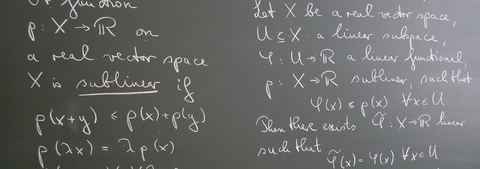 function
p: X → ℝ on
a real vector space
X is sublinear if
p(x+y) ≤ p(x)+p(y)
p(λx) = λ p(x)
Let X be a real vector space,
U ⊆ X a linear subspace,
φ: U → ℝ a linear functional,
p: X → ℝ sublinear, such that
φ(x) ≤ p(x) ∀x∈U
Then there exists φ̃: X → ℝ linear
such that φ̃(x) = φ(x) ∀x∈U